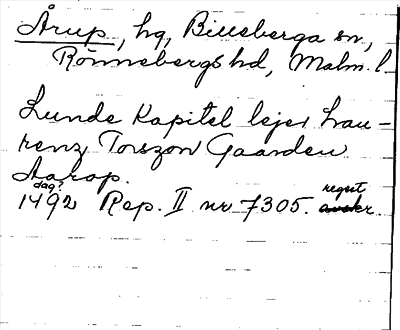 Årup, hg, Billeberga sn,
Rönnebergs hd, Malm. l.
Lunde Kapitel lejer Lau-
renz Torszon Gaarden
Aarop.
dag?
1492 Rep. II nr 7305. regist
avskr.